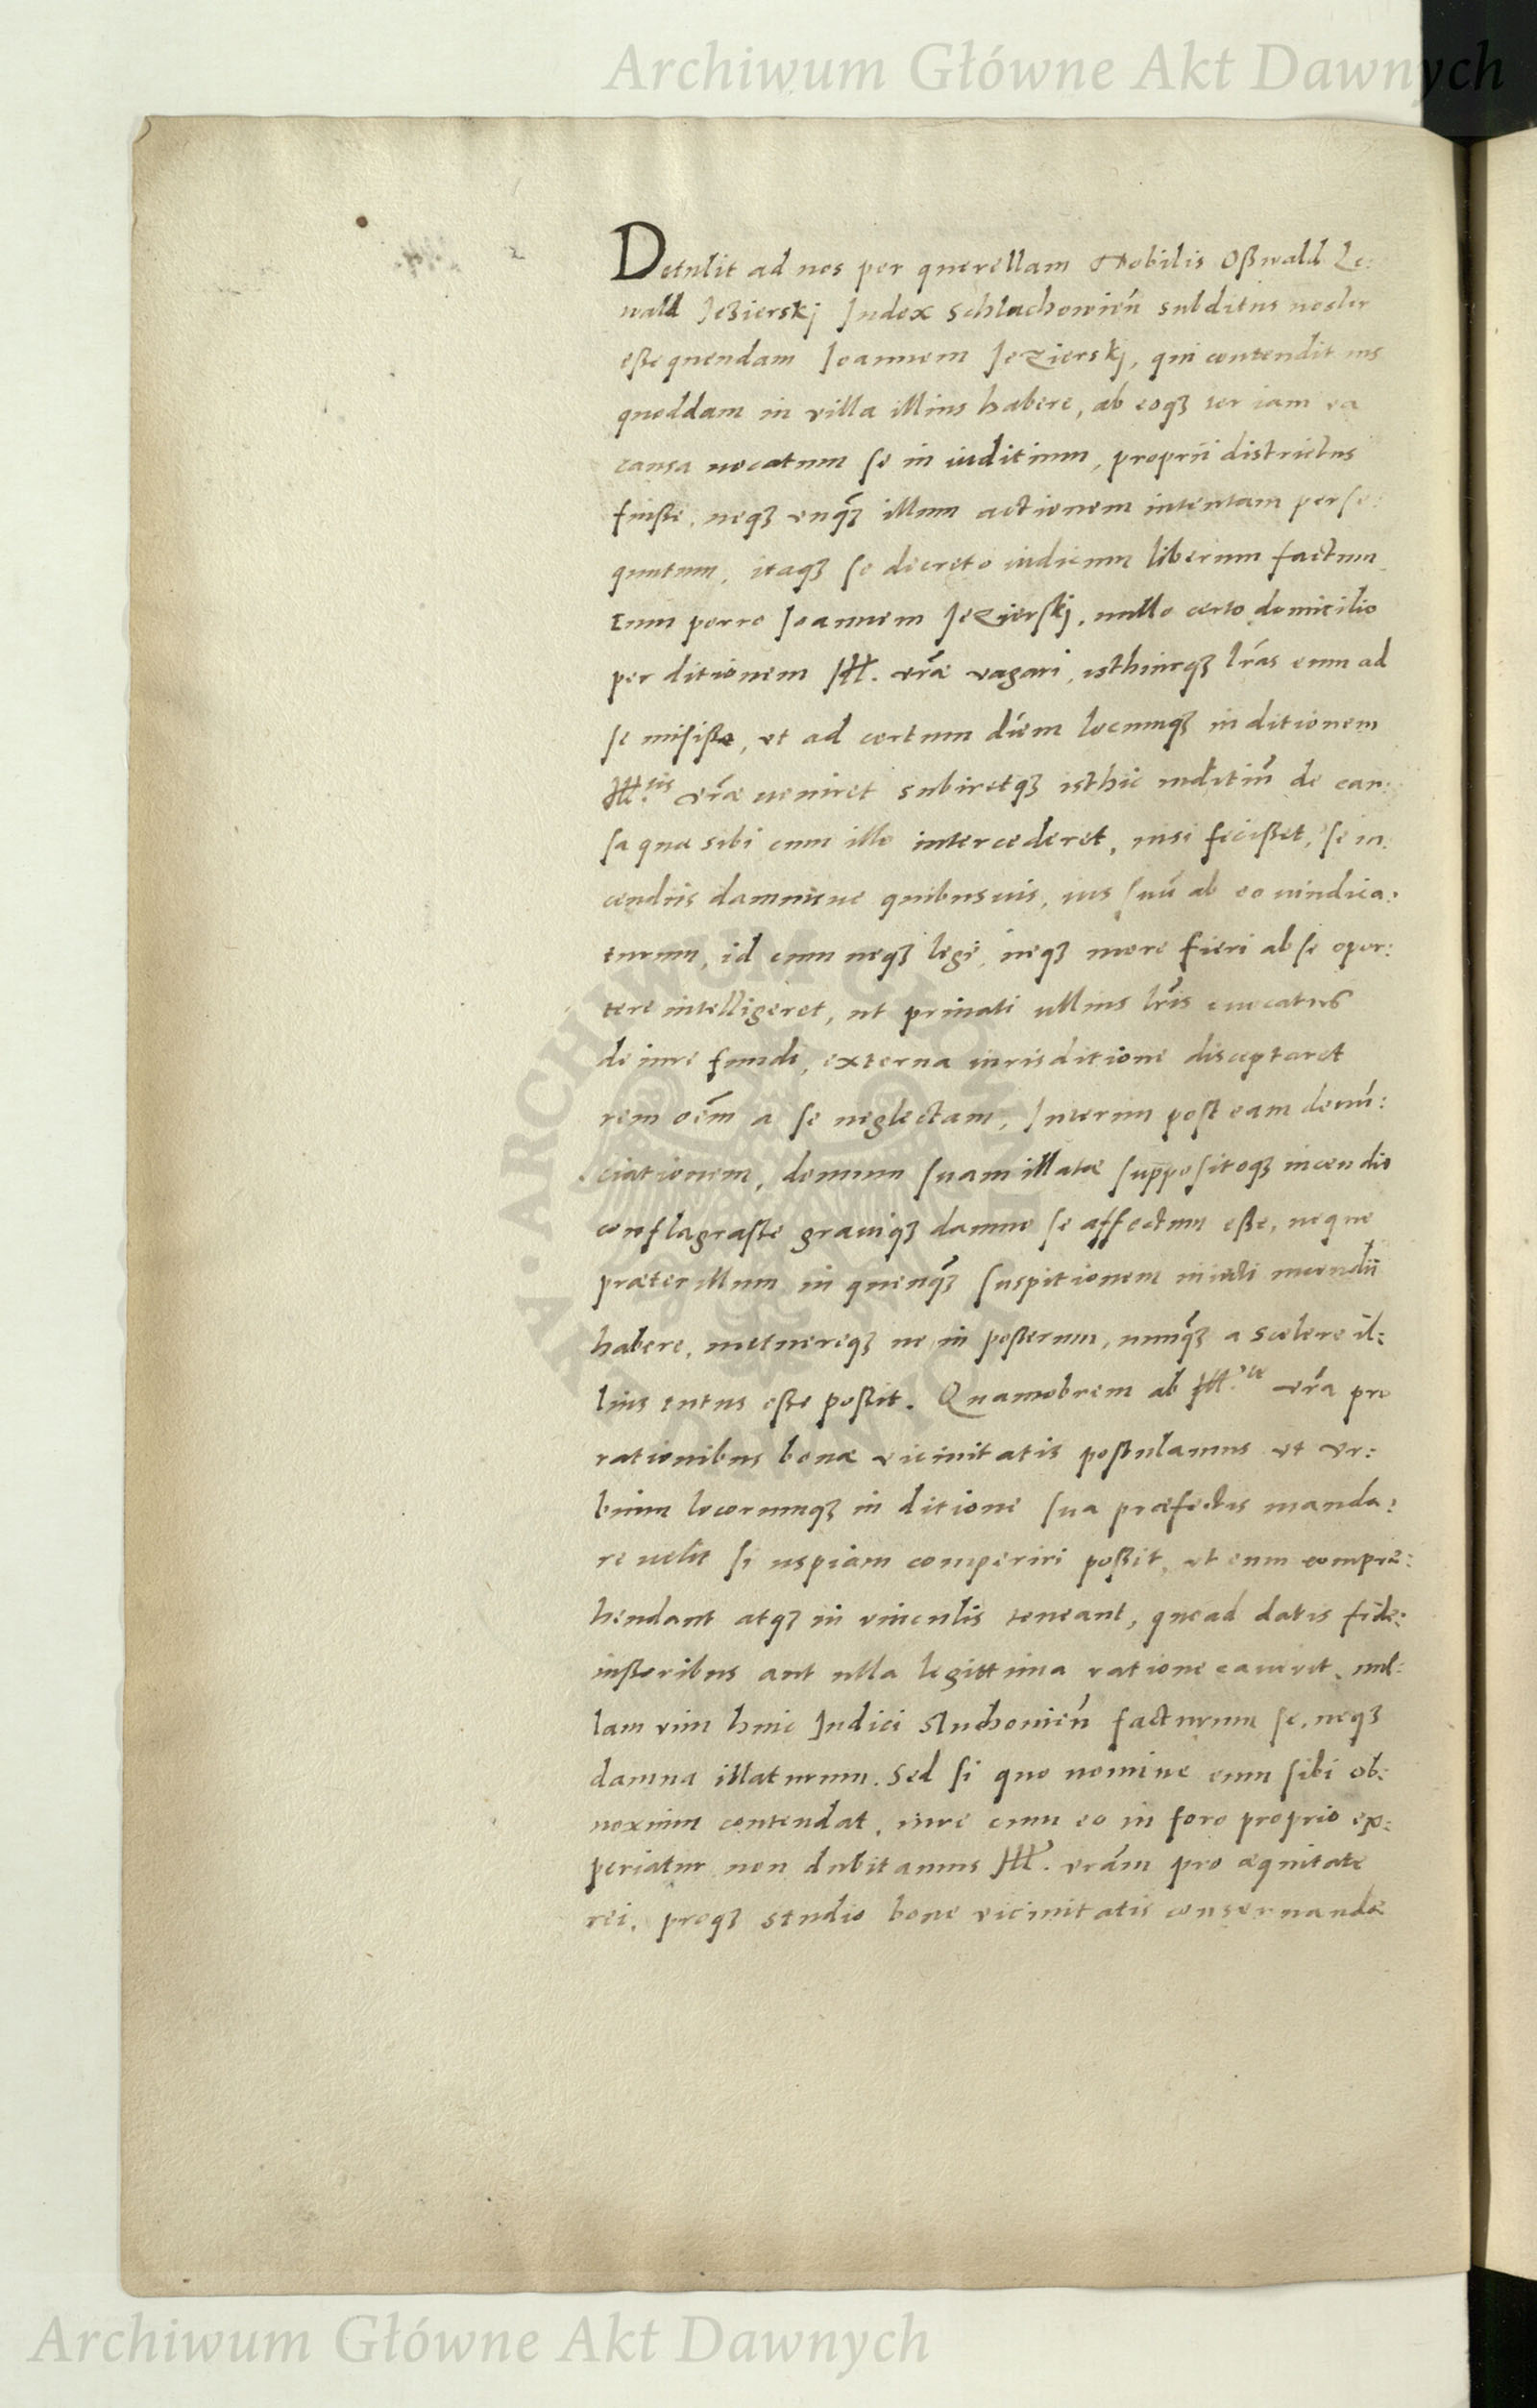 Archiwum Główne Akt Dawnych
Detulit ad nos per querellam Nobilis Oßwald Le:
wald Jezierskj Judex Schlachowieñ subditus noster
eße quendam Joannem Jezierskj, qui contendit ius
quoddam in villa illius habere, ab eoqꝫ ter iam ea
causa vocatum se in iuditium, proprii districtus
fuiße, neqꝫ unq̃ꝫ illum actionem intentam perse:
quutum, itaqꝫ se decreto iudicum liberum factum
Eum porro Joannem Jezierskj, nullo certo domicilio
per ditionem Ill. vrãe vagari, isthincqꝫ lrãs eum ad
se misiße, ut ad certum diem locumqꝫ in ditionem
Ill.tis vrãe veniret subiretqꝫ isthic iuditiũ de cau:
sa quæ sibi cum illo intercederet, nisi fecißet, se in:
cendiis damnisue quibusuis, ius suũ ab eo vindica:
turum, id cum neqꝫ lege, neqꝫ more fieri ab se opor:
tere intelligeret, ut priuati ullius lrĩs euocatus
de iure fundi, externa iurisditione disceptaret
rem oẽm a se neglectam, Interim post eam denũ:
ciationem, domum suam illatæ suppositoqꝫ incendio
conflagraße grauiqꝫ damno se affectum eße, neque
præter illum in quenq̃ꝫ suspitionem iniecti incendii
habere, metuereqꝫ ne in posterum, nunq̃ꝫ a scelere il:
lius tutus eße poßit. Quamobrem ab Ill.te vrã pro
rationibus bonæ vicinitatis postulamus ut ur:
bium locorumqꝫ in ditione sua præfectis manda:
re velit si uspiam comperiri poßit, ut eum compræ:
hendant atqꝫ in vinculis teneant, quoad datis fide:
iußoribus aut ulla legittima ratione cauerit, nul:
lam vim huic Judici Sluchovieñ facturum se, neqꝫ
damna illaturum. Sed si quo nomine eum sibi ob:
noxium contendat, iure cum eo in foro proprio ex:
periatur non dubitamus Ill. vrãm pro æquitate
rei, proqꝫ studio bone vicinitatis conseruandæ
Archiwum Główne Akt Dawnych